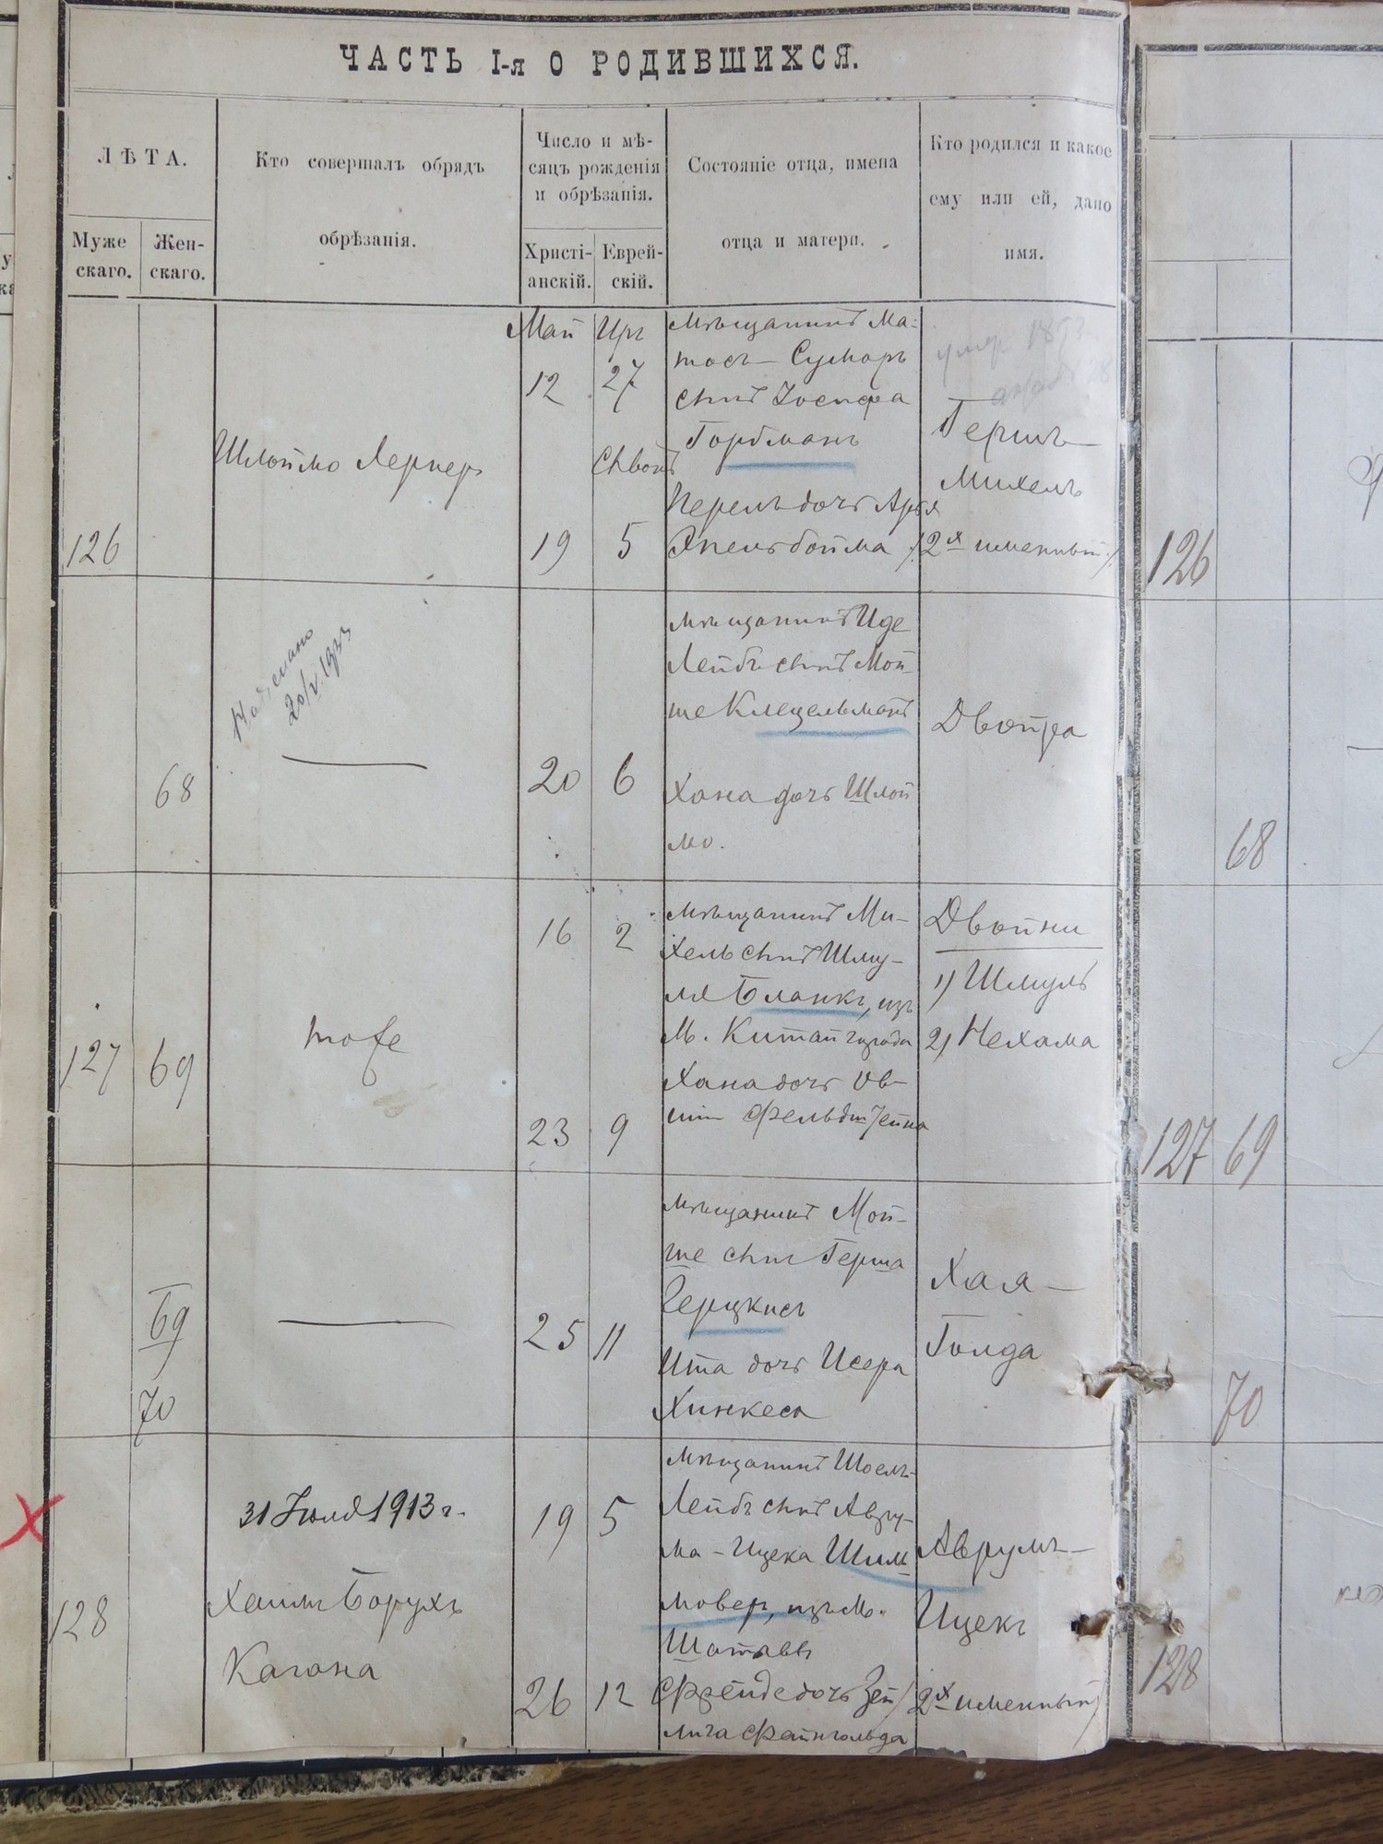 ЧАСТЬ I-я О РОДИВШИХСЯ.
ЛѢТА.
Муже
скаго.
Жен-
скаго.
Кто совершалъ обрядъ
обрѣзанія.
Число и мѣ-
сяцъ рожденія
и обрѣзанія.
Христі-
анскій.
Еврей-
скій.
Состояніе отца, имена
отца и матери.
Кто родился и какое
ему или ей, дано
имя.
126
Шлоймо Лернеръ
Май
12
19
Иръ
27
Сивонъ
5
Мѣщанинъ Ма-
тосъ - Сухаръ
сынъ Іосифа
Горбманъ
Перель дочь Арья
Апельбойма
умеръ
Гершъ-
Михель
/2х именный/
126
68
20/V 1933
20
6
мѣщанинъ Иде
Лейбъ сынъ Мой-
ше Клецельманъ
Хана дочь Шлой
мо.
Двойра
68
127
69
тоже
16
23
2
9
мѣщанинъ Ми-
хель сынъ Шму-
ля Бланкъ, изъ
м. Китайгорода
Хана дочь Ов-
ши Фельдштейна
Двойни
1) Шмуль
2) Нехама
127
69
69
70
25
11
мѣщанинъ Мой-
ше сынъ Герша
Герцкисъ
Ита дочь Исера
Хинкеса
Хая-
Голда
70
128
31 Іюля 1913 г.
Хаимъ Борухъ
Кагана
19
26
5
12
мѣщанинъ Шоель-
Лейбъ сынъ Авру-
ма - Ицека Шим
моверъ, изъ м.
Шатавы
Фрейде дочь Зей
лига Файнгольда
Аврумъ-
Ицекъ
/2х именный/
128